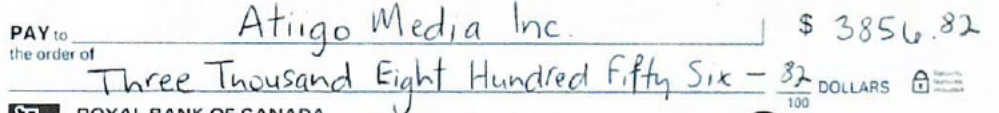 PAY to the order of Atiigo Media Inc. $ 3856.82
Three Thousand Eight Hundred Fifty Six — 82/100 DOLLARS
ROYAL BANK OF CANADA